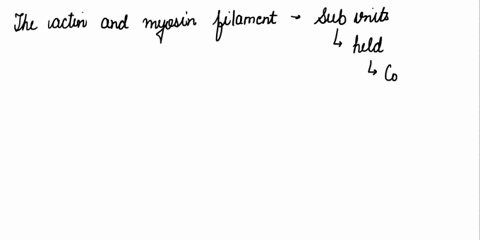 The actin and myosin filament - Sub units
↳ held
↳ Co